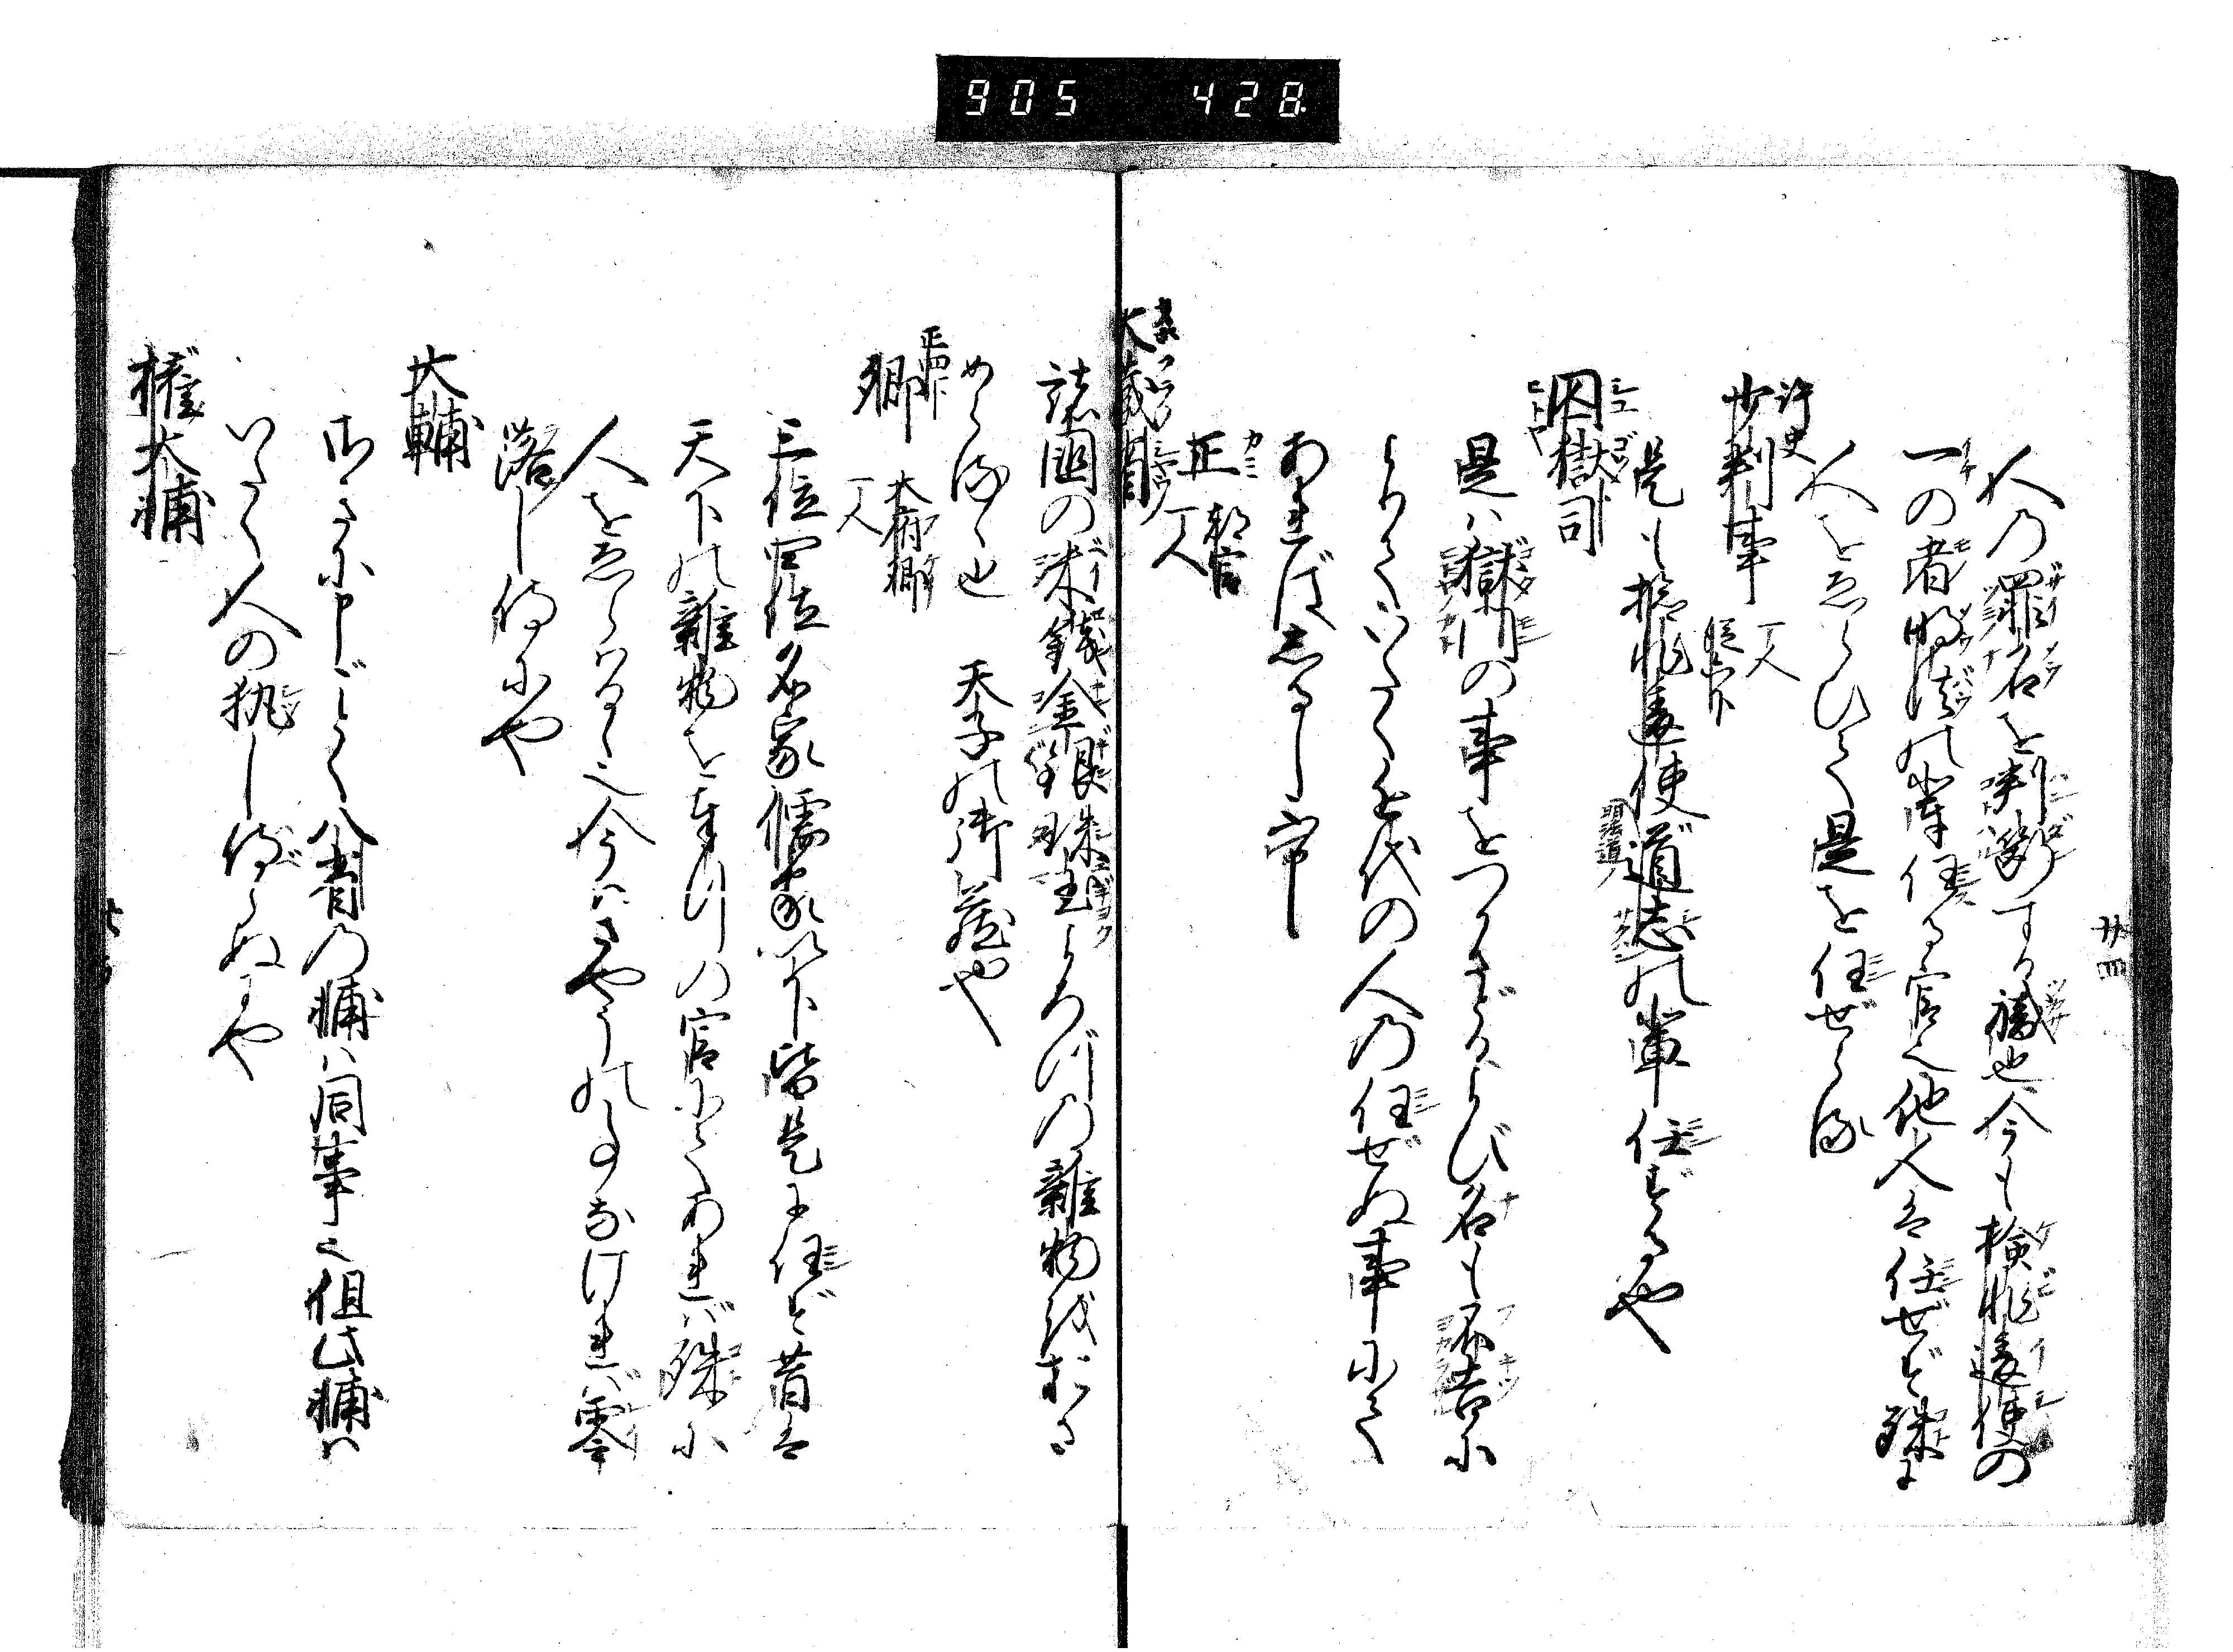 905 428
廿四
人の罪名を判断する職也今も検非違使の
一の者明法の輩任る官也他人は任ぜず殊に
人をゑらひて是を任ぜらる
少判事 一人
是も検非違使道志の輩任ずるや
囚獄司
是は獄門の事をつかさどるよび名も不吉に
よりていたく近代の人の任ぜぬ事にて
あればしるし
正 一人
大蔵省
諸国の米銭金銀珠玉よろづの雑物をおさ
めらるゝ也 天子の御蔵や
卿 一人
三位四位名家儒家以下皆是に任ず昔は
天下の雑物を奉行の官にてあれば殊に
人をゑらばるゝ也今はさやうの事なければ零
落し侍にや
大輔
右に申ごとく八省の輔は同事也但此輔は
いたく人の執し侍らぬにや
権大輔